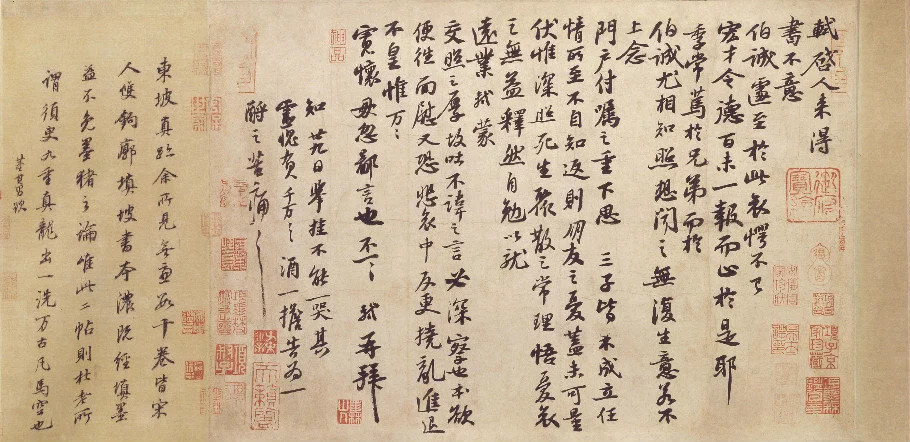 軾啓人來得
書不意
伯誠遽至於此哀愕不已
宏才令德百未一報而止於是耶
季常篤於兄弟而於
伯誠尤相知照想聞之無復生意若不
上念
門戶付囑之重下思三子皆未成立任
情所至不自知返則朋友之憂蓋未可量
伏惟深照死生聚散之常理悟憂哀
之無益釋然自勉以就
遠業軾蒙
交照之厚故吐不諱之言必深察也本欲
便往面慰又恐悲哀中反更撓亂進退
不皇惟萬萬
寬懷毋忽鄙言也不一一軾再拜
知廿九日舉掛不能一哭其
靈愧負千萬千萬酒一擔告為一
酹之苦痛苦痛
東坡真跡余所見無慮數十卷皆宋
人雙鉤廓填坡書本濃既經填墨
益不免墨豬之論唯此二帖則杜老所
謂須臾九重真龍出一洗萬古凡馬空也
董其昌跋